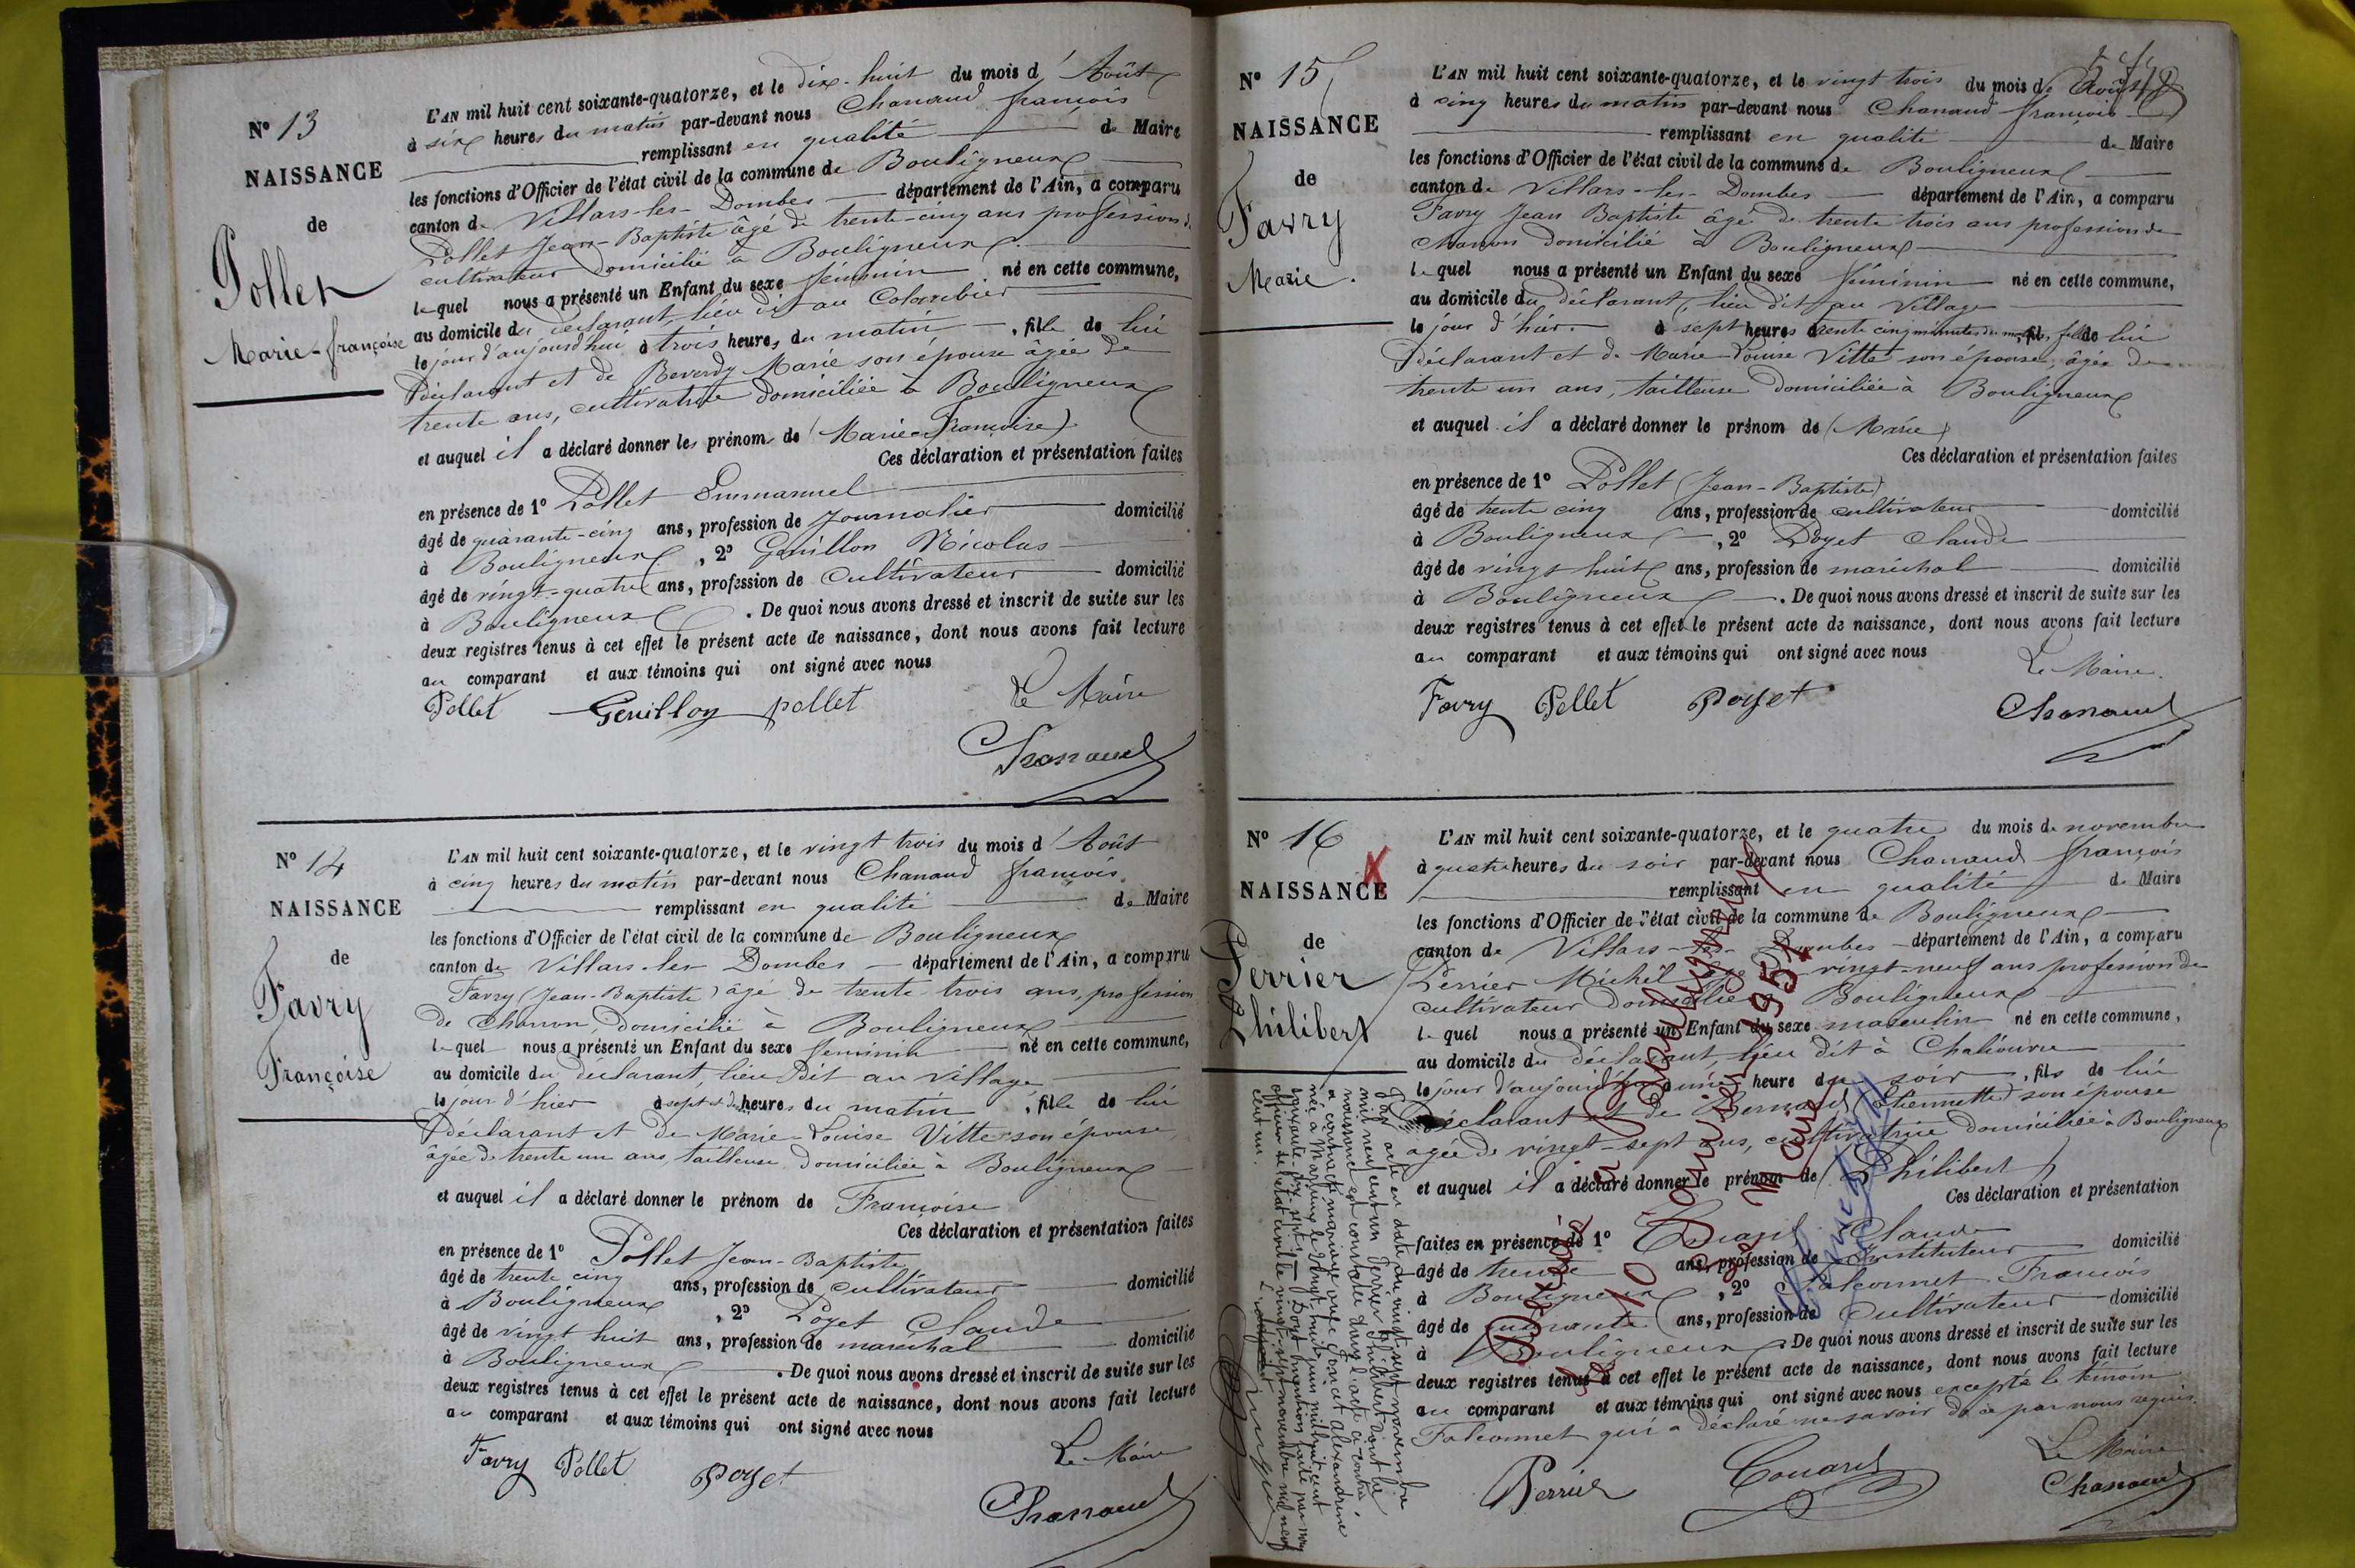 N° 13
NAISSANCE
de
Pollet
Marie-françoise
L'AN mil huit cent soixante-quatorze, et le dix-huit du mois d'Août
à six heures du matin par-devant nous Chanaud françois
remplissant en qualité de Maire
les fonctions d'Officier de l'état civil de la commune de Bouligneux
canton de Villars-les-Dombes département de l'Ain, a comparu
Pollet Jean-Baptiste âgé de trente-cinq ans profession de
cultivateur domicilié à Bouligneux
lequel nous a présenté un Enfant du sexe féminin né en cette commune,
au domicile du déclarant, lieu dit au Colombier
le jour d'aujourd'hui à trois heures du matin, fille de lui
déclarant et de Reverdy Marie son épouse âgée de
trente ans, cultivatrice domiciliée à Bouligneux
et auquel il a déclaré donner les prénoms de (Marie-Françoise)
Ces déclaration et présentation faites
en présence de 1° Pollet Emmanuel
âgé de quarante-cinq ans, profession de Journalier domicilié
à Bouligneux, 2° Genillon Nicolas
âgé de vingt-quatre ans, profession de Cultivateur domicilié
à Bouligneux. De quoi nous avons dressé et inscrit de suite sur les
deux registres tenus à cet effet le présent acte de naissance, dont nous avons fait lecture
au comparant et aux témoins qui ont signé avec nous
Pollet Genillon pollet Le Maire
Chanaud
N° 14
NAISSANCE
de
Favry
Françoise
L'AN mil huit cent soixante-quatorze, et le vingt trois du mois d'Août
à cinq heures du matin par-devant nous Chanaud françois
remplissant en qualité de Maire
les fonctions d'Officier de l'état civil de la commune de Bouligneux
canton de Villars-les-Dombes département de l'Ain, a comparu
Favry (Jean-Baptiste) âgé de trente-trois ans, profession
de Charron, domicilié à Bouligneux
lequel nous a présenté un Enfant du sexe féminin né en cette commune,
au domicile du déclarant, lieu dit au village
le jour d'hier à sept heures du matin, fille de lui
déclarant et de Marie-Louise Vitte son épouse,
âgée de trente un ans, tailleuse, domiciliée à Bouligneux
et auquel il a déclaré donner le prénom de Françoise
Ces déclaration et présentation faites
en présence de 1° Pollet Jean-Baptiste
âgé de trente cinq ans, profession de cultivateur domicilié
à Bouligneux, 2° Poyet Claude
âgé de vingt huit ans, profession de maréchal domicilié
à Bouligneux. De quoi nous avons dressé et inscrit de suite sur les
deux registres tenus à cet effet le présent acte de naissance, dont nous avons fait lecture
au comparant et aux témoins qui ont signé avec nous
Le Maire
Favry Pollet Poyet
Chanaud
N° 15
NAISSANCE
de
Favry
Marie
L'AN mil huit cent soixante-quatorze, et le vingt trois du mois de Août
à cinq heures du matin par-devant nous Chanaud françois
remplissant en qualité de Maire
les fonctions d'Officier de l'état civil de la commune de Bouligneux
canton de Villars-les-Dombes département de l'Ain, a comparu
Favry Jean Baptiste âgé de trente trois ans profession de
charron domicilié à Bouligneux
lequel nous a présenté un Enfant du sexe féminin né en cette commune,
au domicile du déclarant, lieu dit au village
le jour d'hier à sept heures trente cinq minutes du matin, fille de lui
déclarant et de Marie-Louise Vitte son épouse, âgée de
trente un ans, tailleuse domiciliée à Bouligneux
et auquel il a déclaré donner le prénom de (Marie)
Ces déclaration et présentation faites
en présence de 1° Pollet (Jean-Baptiste)
âgé de trente cinq ans, profession de cultivateur domicilié
à Bouligneux, 2° Poyet Claude
âgé de vingt huit ans, profession de maréchal domicilié
à Bouligneux. De quoi nous avons dressé et inscrit de suite sur les
deux registres tenus à cet effet le présent acte de naissance, dont nous avons fait lecture
au comparant et aux témoins qui ont signé avec nous
Le Maire.
Favry Pollet Poyet
Chanaud
N° 16
X
NAISSANCE
de
Perrier
Philibert
L'AN mil huit cent soixante-quatorze, et le quatre du mois de novembre
à quatre heures du soir par-devant nous Chanaud françois
remplissant en qualité de Maire
les fonctions d'Officier de l'état civil de la commune de Bouligneux
canton de Villars-les-Dombes département de l'Ain, a comparu
Perrier Michel âgé de vingt-neuf ans profession de
cultivateur domicilié à Bouligneux
lequel nous a présenté un Enfant du sexe masculin né en cette commune,
au domicile du déclarant, lieu dit à Chalïouvre
le jour d'aujourd'hui à une heure du soir, fils de lui
déclarant et de Bernard (Etiennette) son épouse
agée de vingt-sept ans, cultivatrice domiciliée à Bouligneux
et auquel il a déclaré donner le prénom de (Philibert)
Ces déclaration et présentation
faites en présence de 1° Couard Claude
âgé de trente ans, profession de Instituteur domicilié
à Bouligneux, 2° Falconnet François
âgé de quarante ans, profession de Cultivateur domicilié
à Bouligneux. De quoi nous avons dressé et inscrit de suite sur les
deux registres tenus à cet effet le présent acte de naissance, dont nous avons fait lecture
au comparant et aux témoins qui ont signé avec nous excepté le témoin
Falconnet qui a déclaré ne savoir de ce par nous requis.
Le Maire
Perrier Couard Chanaud
Par acte en date du vingt sept novembre
mil neuf cent un Perrier Philibert dont la
naissance est constatée dans l'acte ci-contre,
a contracté mariage avec alexandrine
née à Marlieux le vingt-huit juin mil huit cent
soixante-dix sept. Dont mention faite par nous
officier de l'état civil le vingt sept novembre mil neuf
cent un.
Décédé à Bouligneux
le 10 Janvier 1951
Le Maire